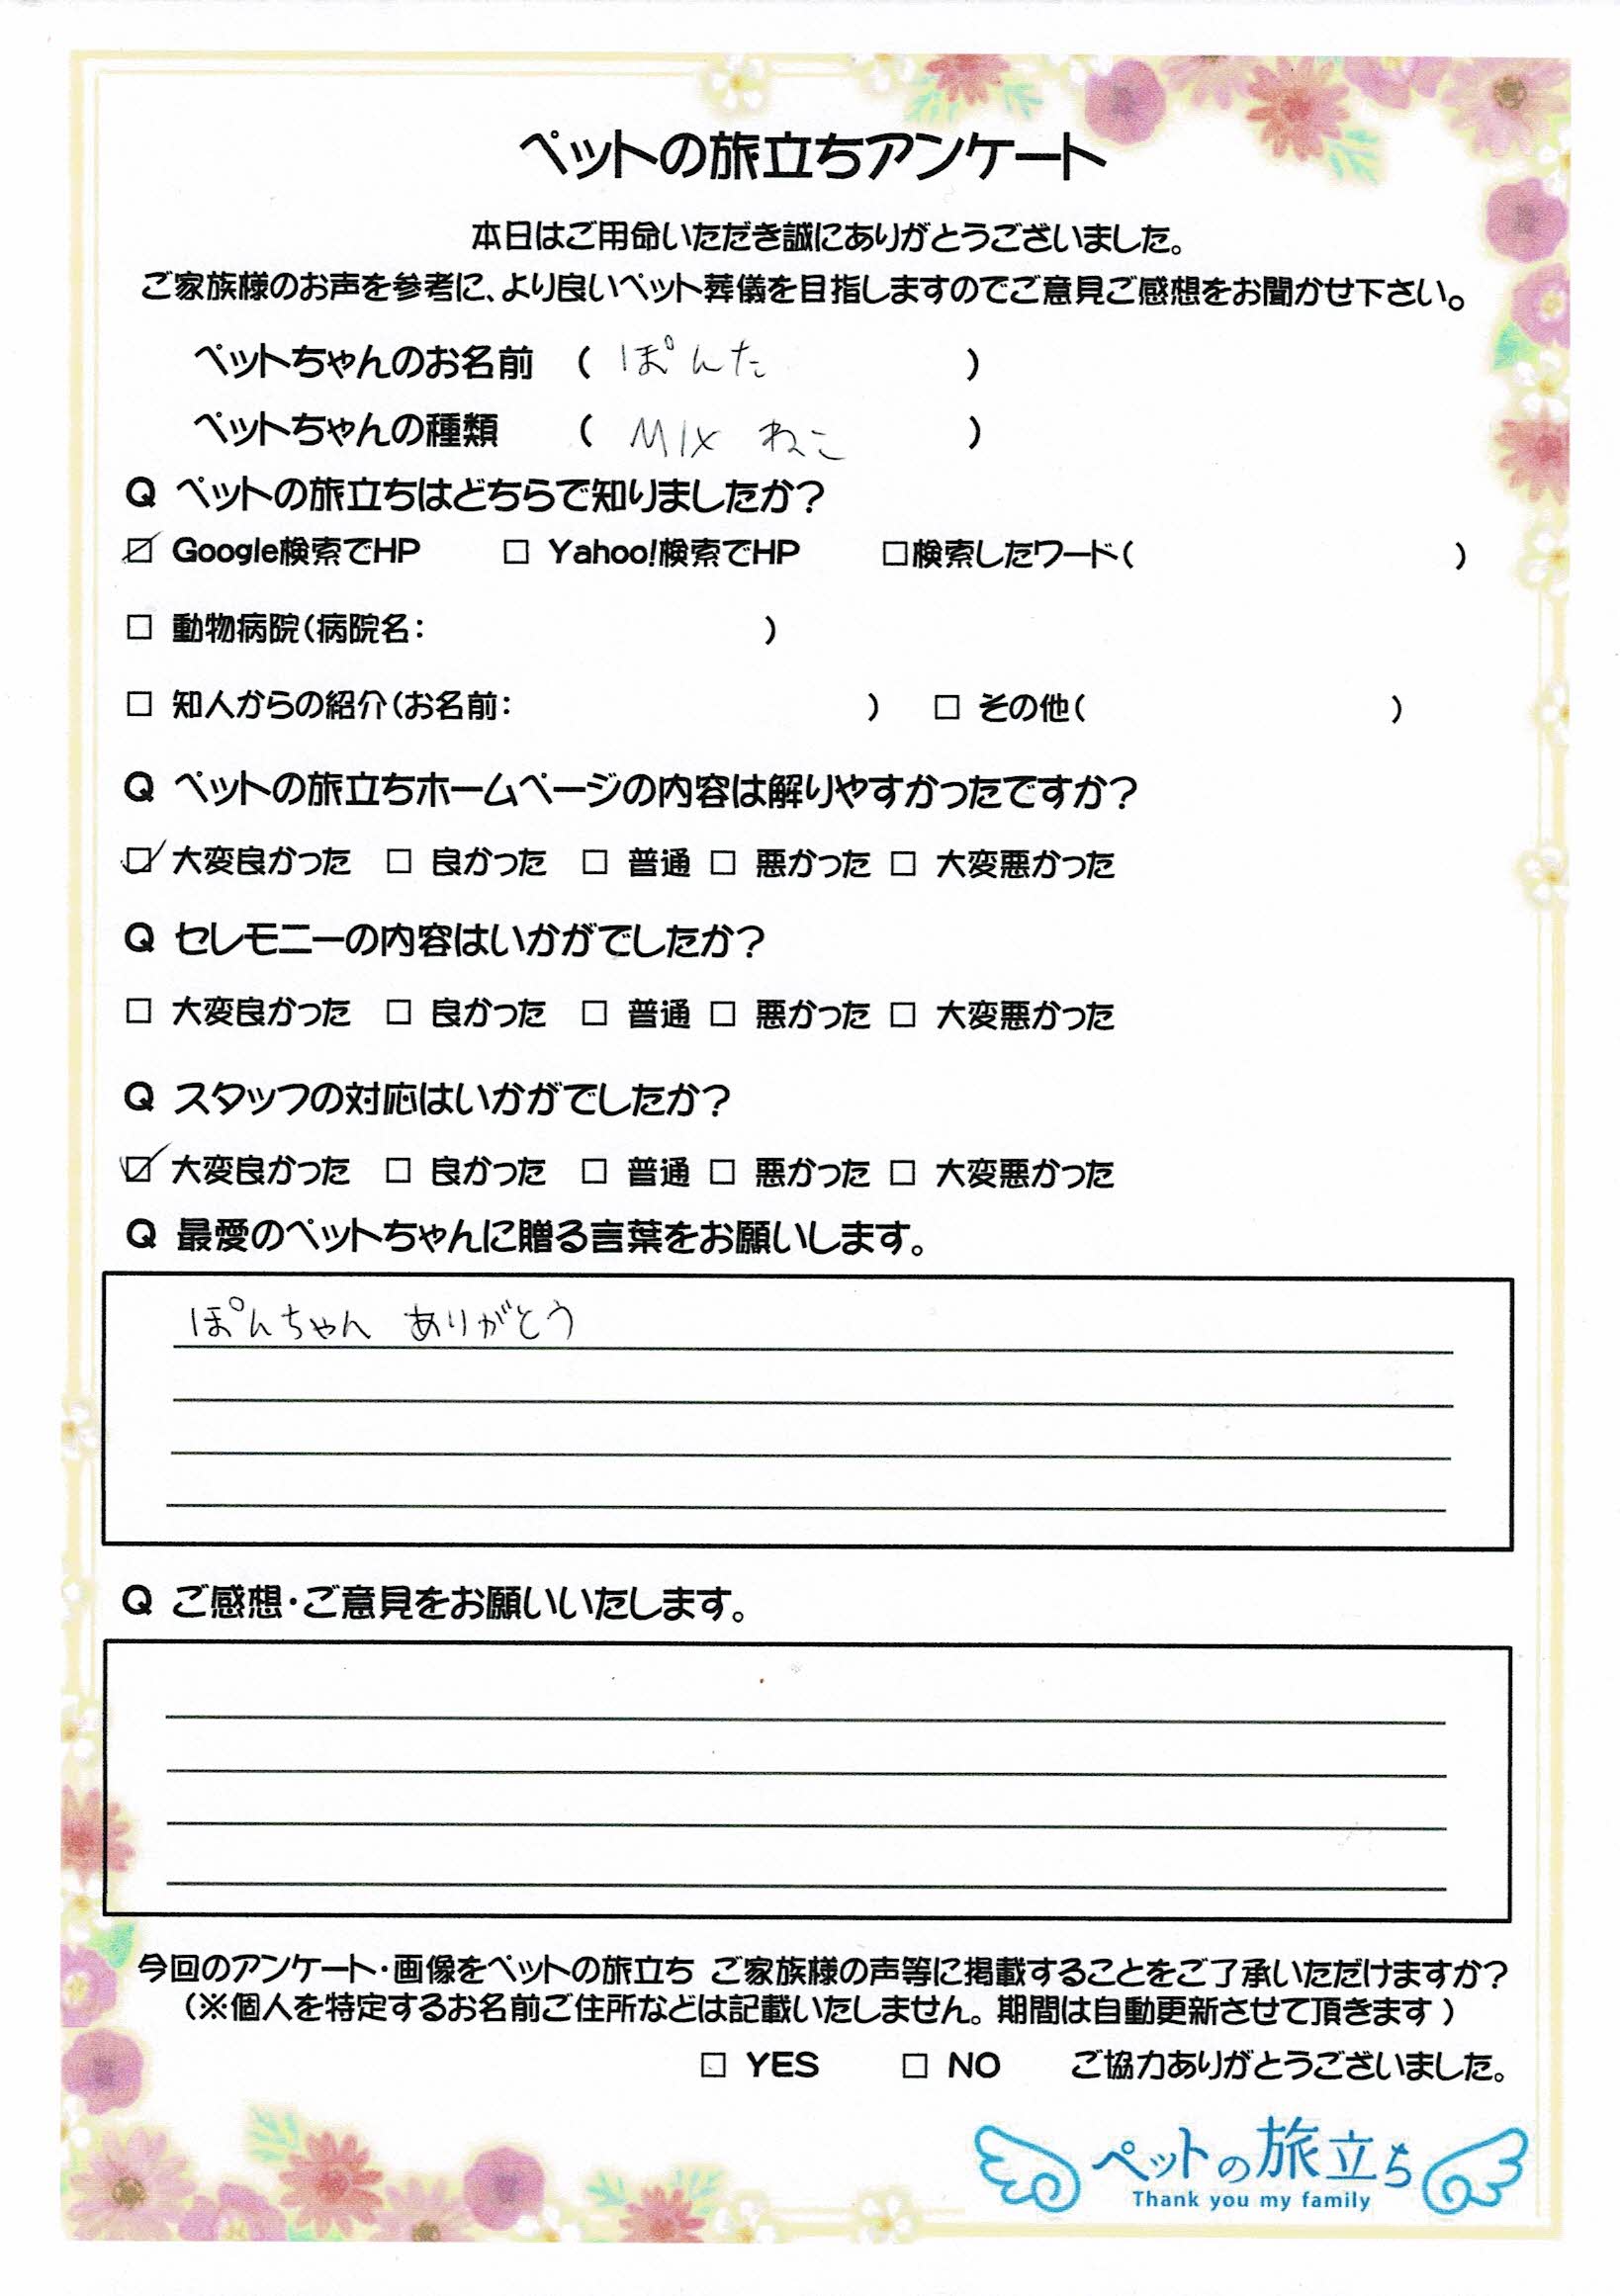 ペットの旅立ちアンケート
本日はご用命いただき誠にありがとうございました。
ご家族様のお声を参考に、より良いペット葬儀を目指しますのでご意見ご感想をお聞かせ下さい。
ペットちゃんのお名前 ( ぽんた )
ペットちゃんの種類 ( MIX ねこ )
Q ペットの旅立ちはどちらで知りましたか?
☑ Google検索でHP □ Yahoo!検索でHP □検索したワード( )
□ 動物病院(病院名: )
□ 知人からの紹介(お名前: ) □ その他( )
Q ペットの旅立ちホームページの内容は解りやすかったですか?
☑ 大変良かった □ 良かった □ 普通 □ 悪かった □ 大変悪かった
Q セレモニーの内容はいかがでしたか?
□ 大変良かった □ 良かった □ 普通 □ 悪かった □ 大変悪かった
Q スタッフの対応はいかがでしたか?
☑ 大変良かった □ 良かった □ 普通 □ 悪かった □ 大変悪かった
Q 最愛のペットちゃんに贈る言葉をお願いします。
ぽんちゃん ありがとう
Q ご感想・ご意見をお願いいたします。
今回のアンケート・画像をペットの旅立ち ご家族様の声等に掲載することをご了承いただけますか?
(※個人を特定するお名前ご住所などは記載いたしません。期間は自動更新させて頂きます)
□ YES □ NO ご協力ありがとうございました。
ペットの旅立ち
Thank you my family